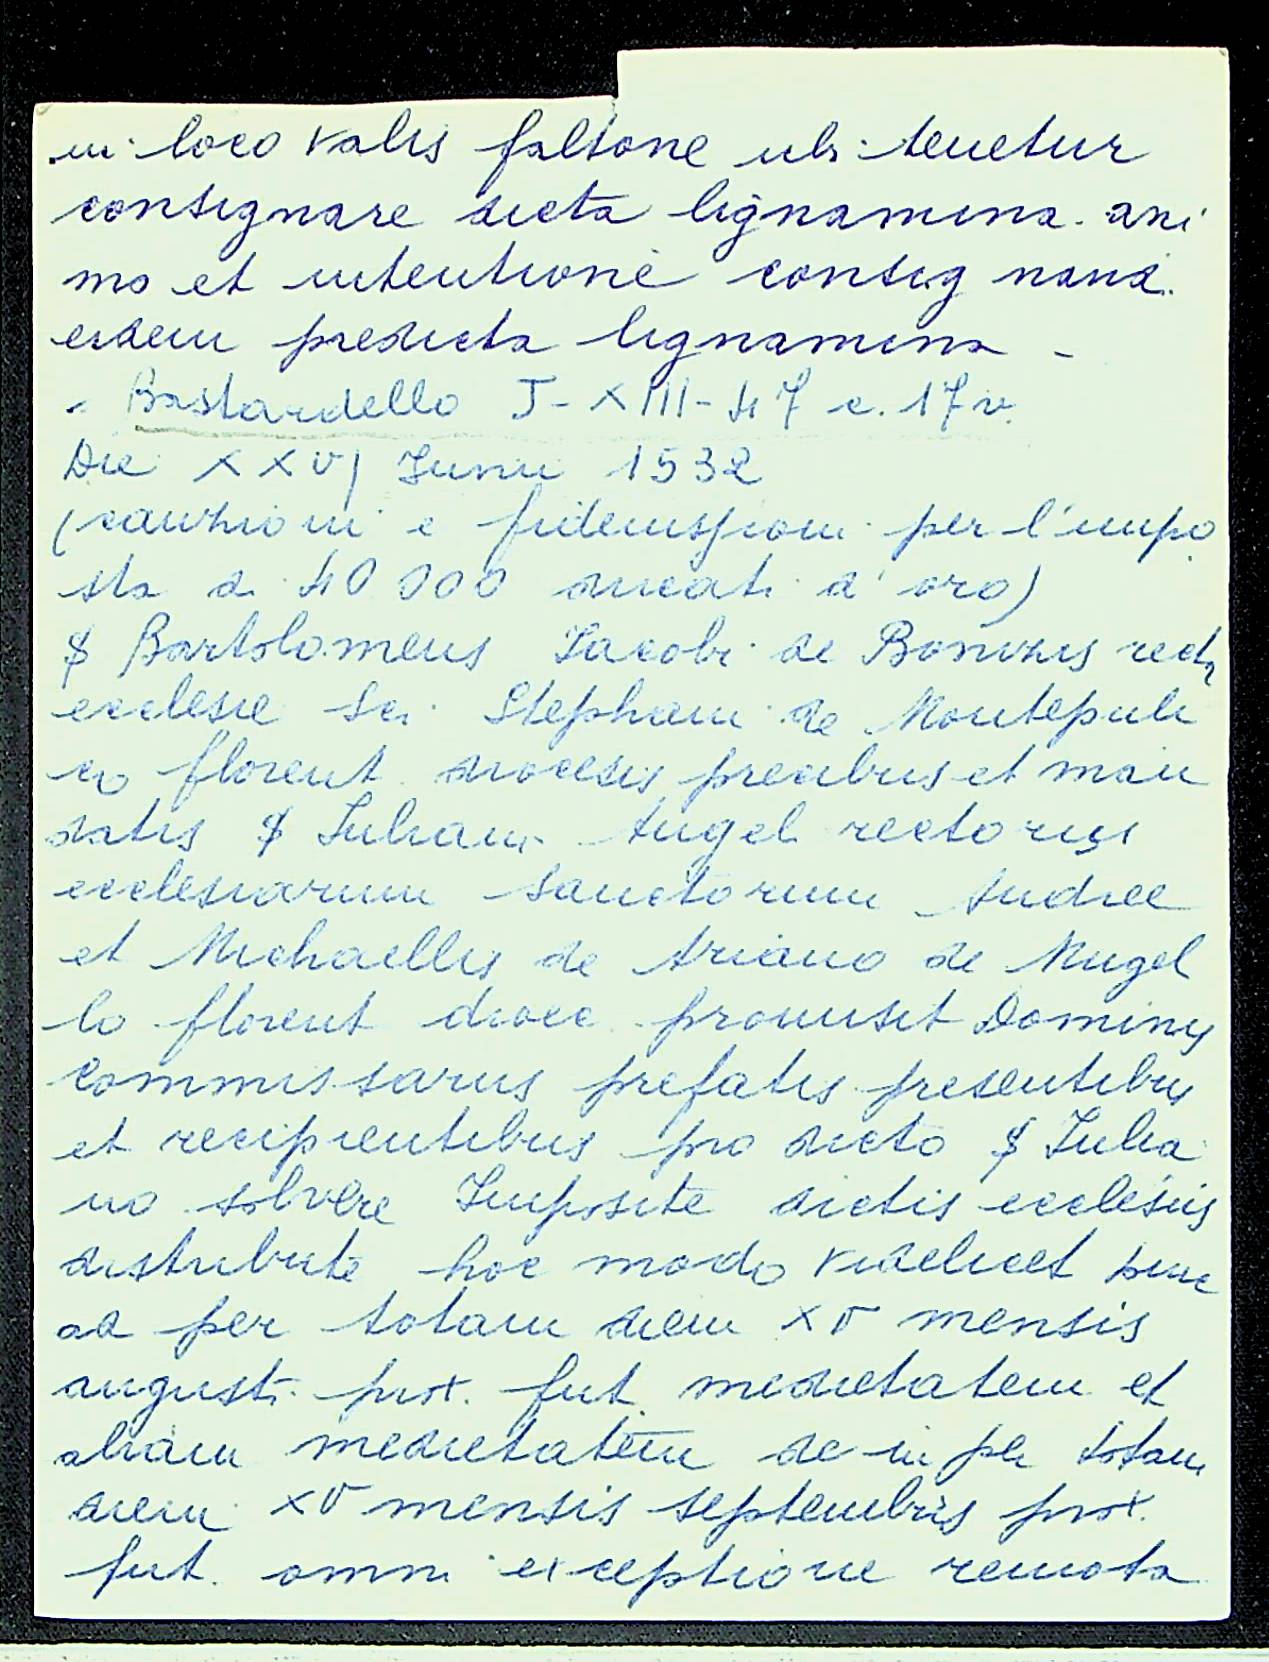 in loco valis faltone ubi tenetur
consignare dicta lignamina. ani
mo et intentione consig nand.
eidem predicta lignamina -
Bastardello J-XIII-47 c. 17v.
Die XXVJ Junii 1532
(cauzioni e fideiussioni per l'impo
sta di 40 000 ducati d'oro)
$ Bartolomeus Jacobi de Bonizis rect
ecclesie Sci. Stephani de Montepuli
co florent. diocesis precibus et man
datis $ Juliani Angeli rectoris
ecclesiarum Sanctorum Andree
et Michaellis de Ariano de Mugel
lo florent dioce. promisit Dominis
Commissariis prefatis presentibus
et recipientibus pro dicto $ Julia
no solvere Imposite dictis ecclesiis
distribute hoc modo videlicet hinc
ad per totam diem XV mensis
augusti prox. fut. medietatem et
aliam medietatem de in per totam
diem XV mensis septembris prox.
fut. omni exceptione remota